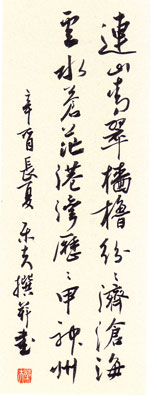 連山青翠檣櫓紛〻濟滄海
雲水蒼茫港灣歷〻甲神州
辛酉長夏 撰并書